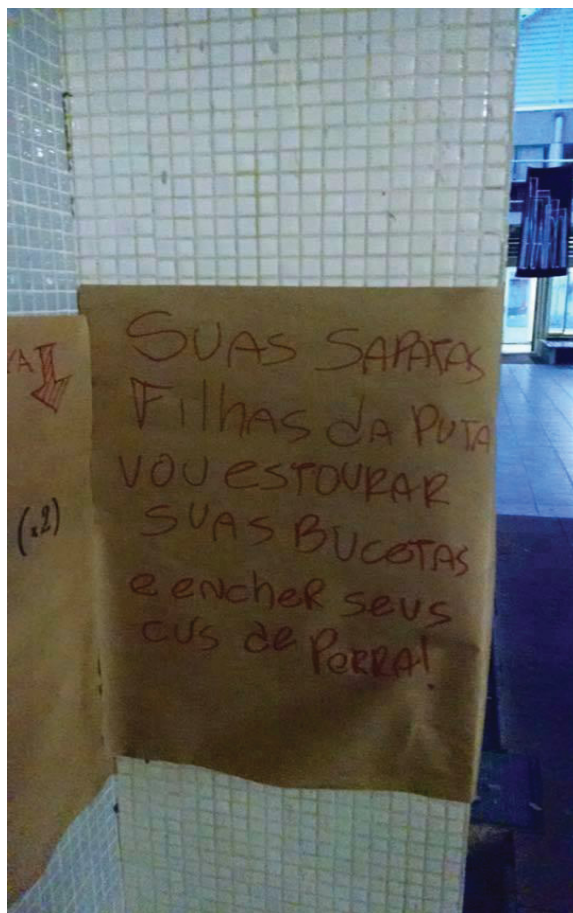 SUAS SAPATAS
FilhAS dA PUTA
VOU eSTOURAR
SUAS BUCETAS
e eNcheR seus
cus de PORRA!
YA
(.2)